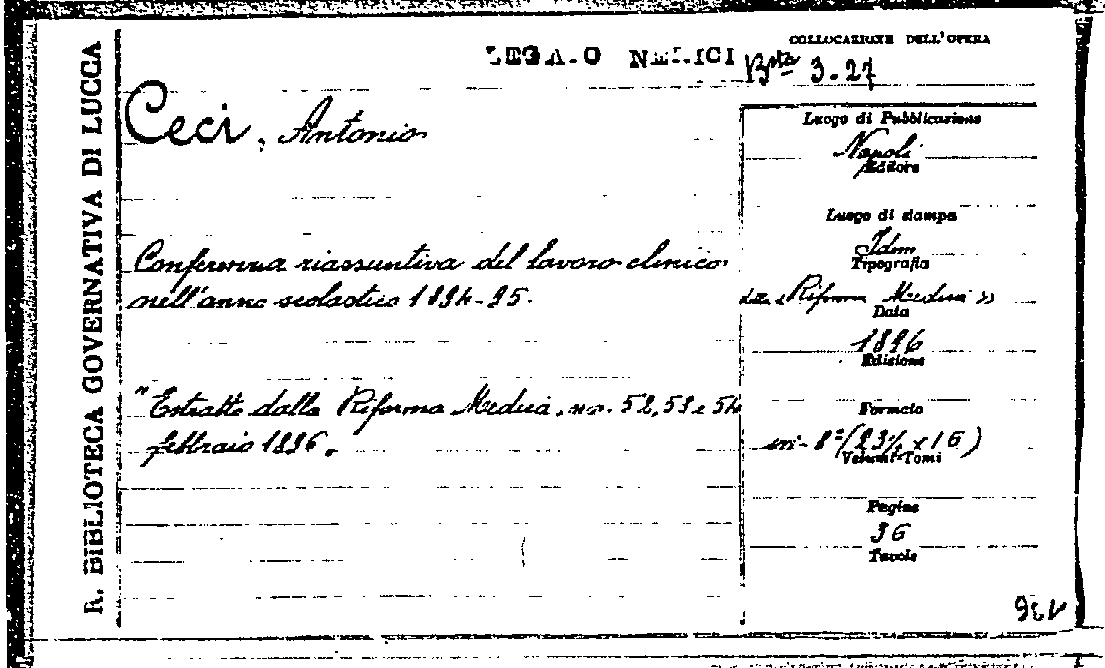 R. BIBLIOTECA GOVERNATIVA DI LUCCA
COLLOCAZIONE DELL'OPERA
LEGA.O NELICI Bta 3.27
Ceci, Antonio
Luogo di Pubblicazione
Napoli
Editore
Luogo di stampa
Idm
Tipografia
Conferenza riassuntiva del lavoro clinico
nell'anno scolastico 1894-95.
"Riforma Medica"
Data
1896
Edizione
"Estratto dalla Riforma Medica, no. 52, 53 e 54
febbraio 1896.
Formato
in-8º (23½ x 16)
Volumi-Tomi
Pagine
36
Tavole